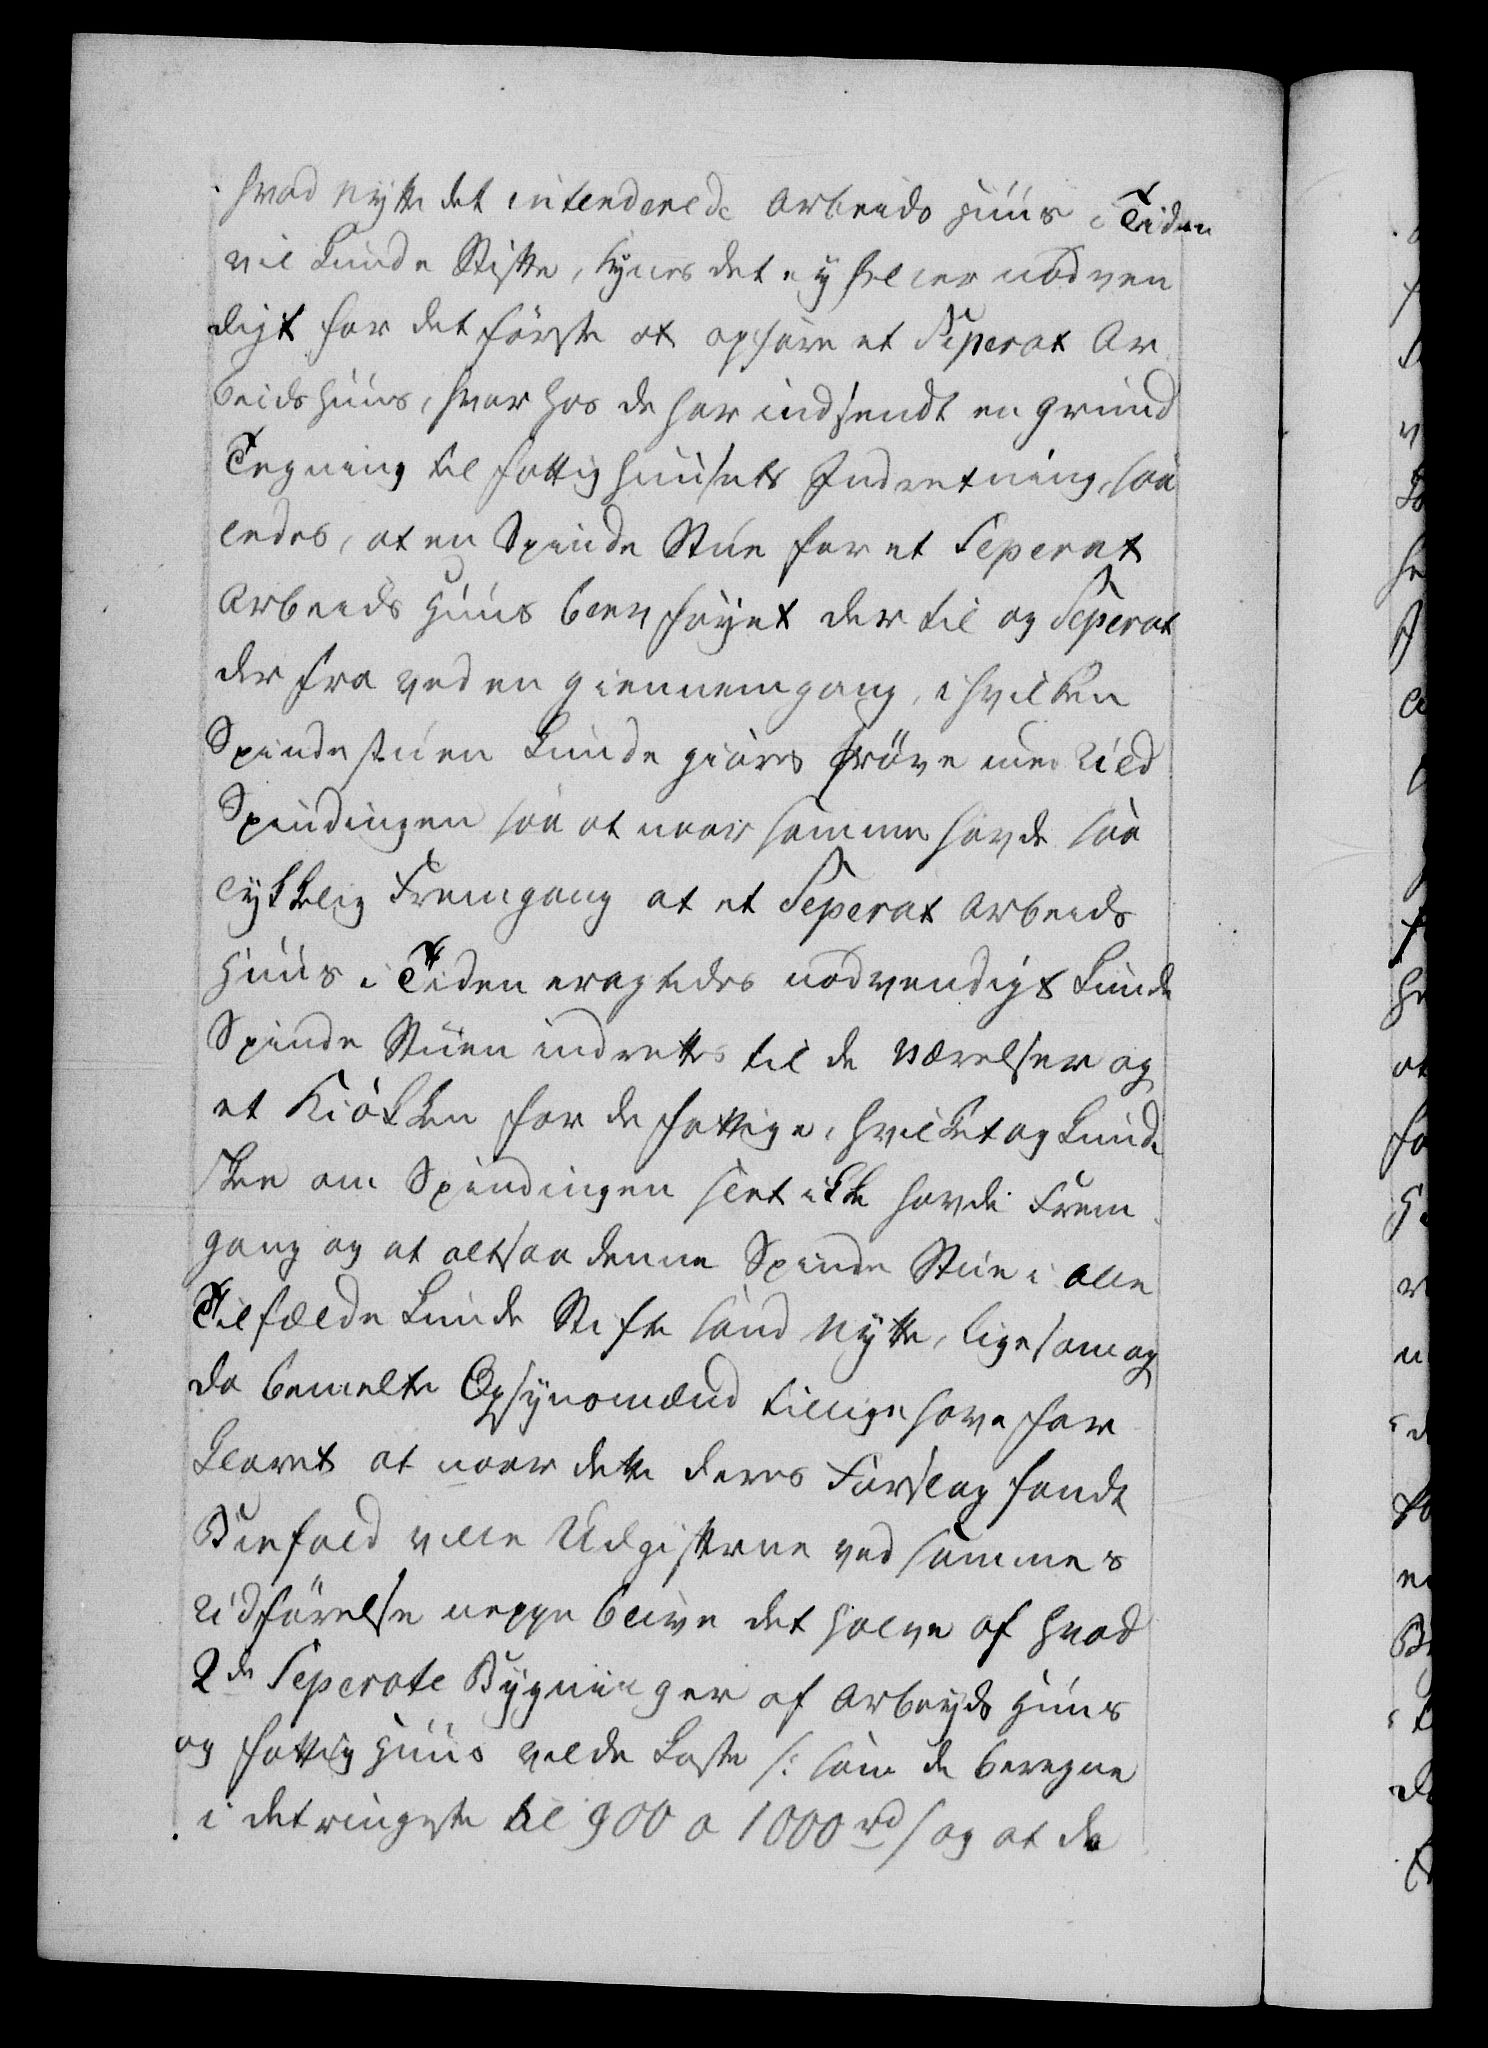 hvad Nytte det intenderede Arbeids Huus i Tiden
vil kunde stifte, synes det ey heller nødven
digt for det første at opføre et Seperat Ar
beidshuus, hvor hos de har indsendt en Grund
Tegning til Fattighuusets Indretning, saa
ledes, at en Spinde Stue for et Seperat
Arbeids Huus blev føyet der til og Seperat
der fra ved en Giennemgang, i hvilken
Spindestuen kunde giøres Prøve med Uld
Spindingen saa at naar samme havde saa
lykkelig Fremgang at et Seperat Arbeids
Huus i Tiden eragtedes nødvendigt kunde
Spinde Stuen indrettes til de Værelser og
et Kiøkken for de Fattige, hvilket og kunde
skee om Spindingen slet ikke havde Frem
gang og at altsaa denne Spinde Stue i alle
Tilfælde kunde stifte sand Nytte, ligesom og
da bemelte Opsynsmænd tillige have for
klaret at naar dette deres Forslag fandt
Biefald ville Udgifterne ved sammes
Udførelse neppe blive det halve af hvad
2de Seperate Bygninger af Arbeyds Huus
og Fattig Huus vilde koste /: som de beregne
i det ringeste til 900 a 1000 rd / og at de